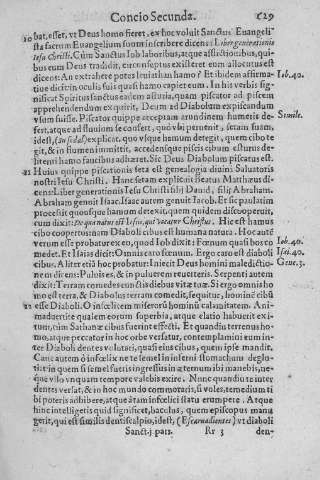 Concio Secunda. 629
20 bat, esset, vt Deus homo fieret, ex hoc voluit Sanctus Euangeli-
sta sacrum Euangelium suum inscribere dicens: Liber generationis
Iesu Christi. Cùm Sanctus Iob laboribus, atque afflictionibus, qui-
bus eum Deus tradidit, circunseptus exisset eum allocutus est
dicens: An extrahere potes leuiathan hamo? Et ibidem affirma- Iob. 40.
tiue dicit: in oculis suis quasi hamo capiet eum. In his verbis sig-
nificat Spiritus sanctus eadem astutia, quam piscator ad piscem
apprehendendum exquirit, Deum ad Diabolum expiscandum
vsum fuisse. Piscator quippe arcum humeris de- Simile.
fert, atque ad fluuium se confert, quò vbi peruenit, setam suam,
idest, explicat, quo vsque hamum detegit, quem cibo te
git, & in flumen immittit, accedensque piscis cibum esturus de-
litenti hamo faucibus adhæret. Sic Deus Diabolum piscatus est.
21 Huius quippe piscationis seta est genealogia diuini Saluatoris
nostri Iesu Christi. Hanc setam explicuit Beatus Matthæus di-
cens: Liber generationis Iesu Christi filij Dauid, filij Abraham.
Abraham genuit Isaac. Isaac autem genuit Iacob. Et sic paulatim
processit quousque hamum detexit, quem quidem discooperuit,
cum dixit: De qua natus est Iesus, qui vocatur Christus. Hic est hamus
cibo coopertus nam Diaboli cibus est humana natura. Hoc autē
verum esse probatur ex eo, quod Iob dixit: Fœnum quasi bos co Iob. 40.
medet. Et Isaias dicit: Omnis caro fœnum. Ergo caro est diaboli Isai. 40.
cibus. Aliter etiā hoc probatur: Iniecit Deus homini maledictio- Gene. 3.
nem dicens: Puluis es, & in puluerem reuerteris. Serpenti autem
dixit: Terram comedes cunctis diebus vitæ tuæ. Si ergo omnis ho
mo est terra, & Diabolus terram comedit, sequitur, hominē cibū
22 esse Diaboli. O infœlicem miseros hominū calamitatem. Ani-
maduertite qualem eorum superbia, atque elatio habuerit exi-
tum, cùm Sathanæ cibus fuerint effecti. Et quandiu terrenus ho-
mo, atque peccator in hoc orbe versatur, contemplamini eum in-
ter Diaboli dentes volutari, quasi eius cibus, quem ipse mandit.
Cauе autem ô infœlix ne te semel in inferni stomachum deglu-
tiat: in quem si semel fueris ingressus in æternum ibi manebis, ne-
que vllo vnquam tempore valebis exire. Nunc quandiu te inter
dentes versat, & in hoc mundo commoraris, si voles, remedium ti
bi poteris adhibere, atque à tam infœlici statu erumpere. Atque
hinc intelligetis quid significet, baculus, quem episcopus manu
gerit, qui est similis dentiscalpio, idest, (Escarnadientes) vt diaboli
Sanct. j. pars. Rr 3 den-